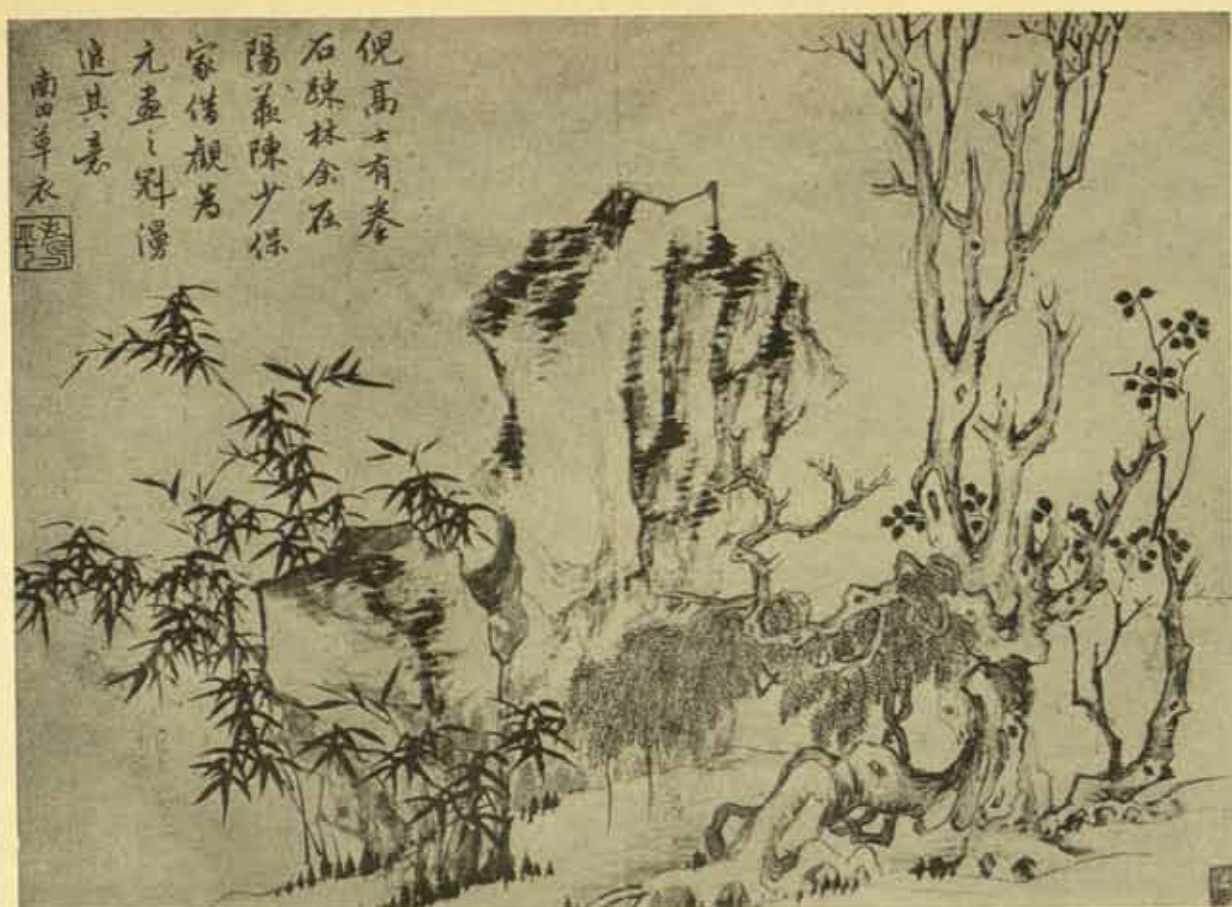 倪高士有拳
石踈林余在
陽羨陳少保
家借觀為
元畫之冠漫
追其意
南田草衣